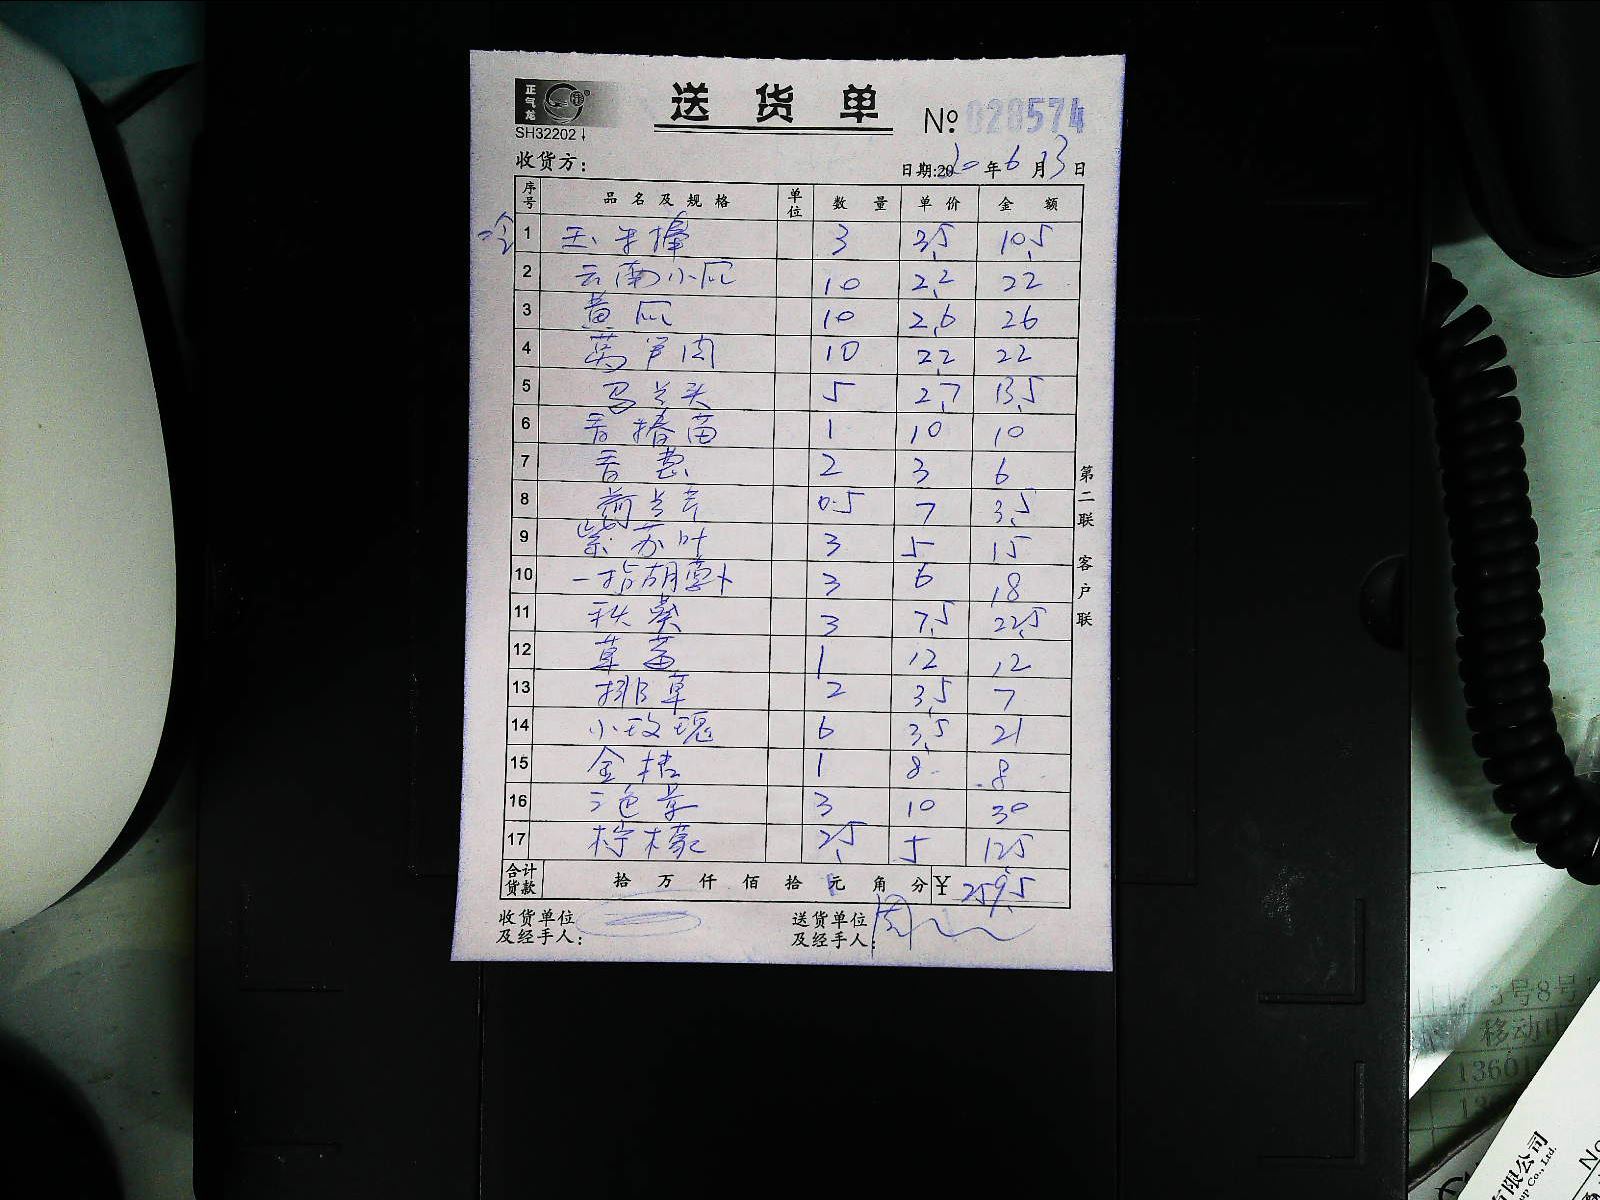 正气龙
SH32202↓
送货单
No 028574
收货方：
日期:2020年6月13日
序号 品名及规格 单位 数量 单价 金额
冷 1 玉米棒 3 3.5 10.5
2 云南小瓜 10 2.2 22
3 黄瓜 10 2.6 26
4 莴笋肉 10 2.2 22
5 马兰头 5 2.7 13.5
6 香椿苗 1 10 10
7 香葱 2 3 6
8 荷兰芹 0.5 7 3.5
9 紫苏叶 3 5 15
10 一指胡萝卜 3 6 18
11 秋葵 3 7.5 22.5
12 草莓 1 12 12
13 排草 2 3.5 7
14 小玫瑰 6 3.5 21
15 金桔 1 8 8
16 三色堇 3 10 30
17 柠檬 2.5 5 12.5
合计货款 拾 万 仟 佰 拾 元 角 分 ¥ 259.5
收货单位及经手人：
送货单位及经手人：周
第二联 客户联
3号8号
移动电
1360
有限公司
Co., Ltd.
No